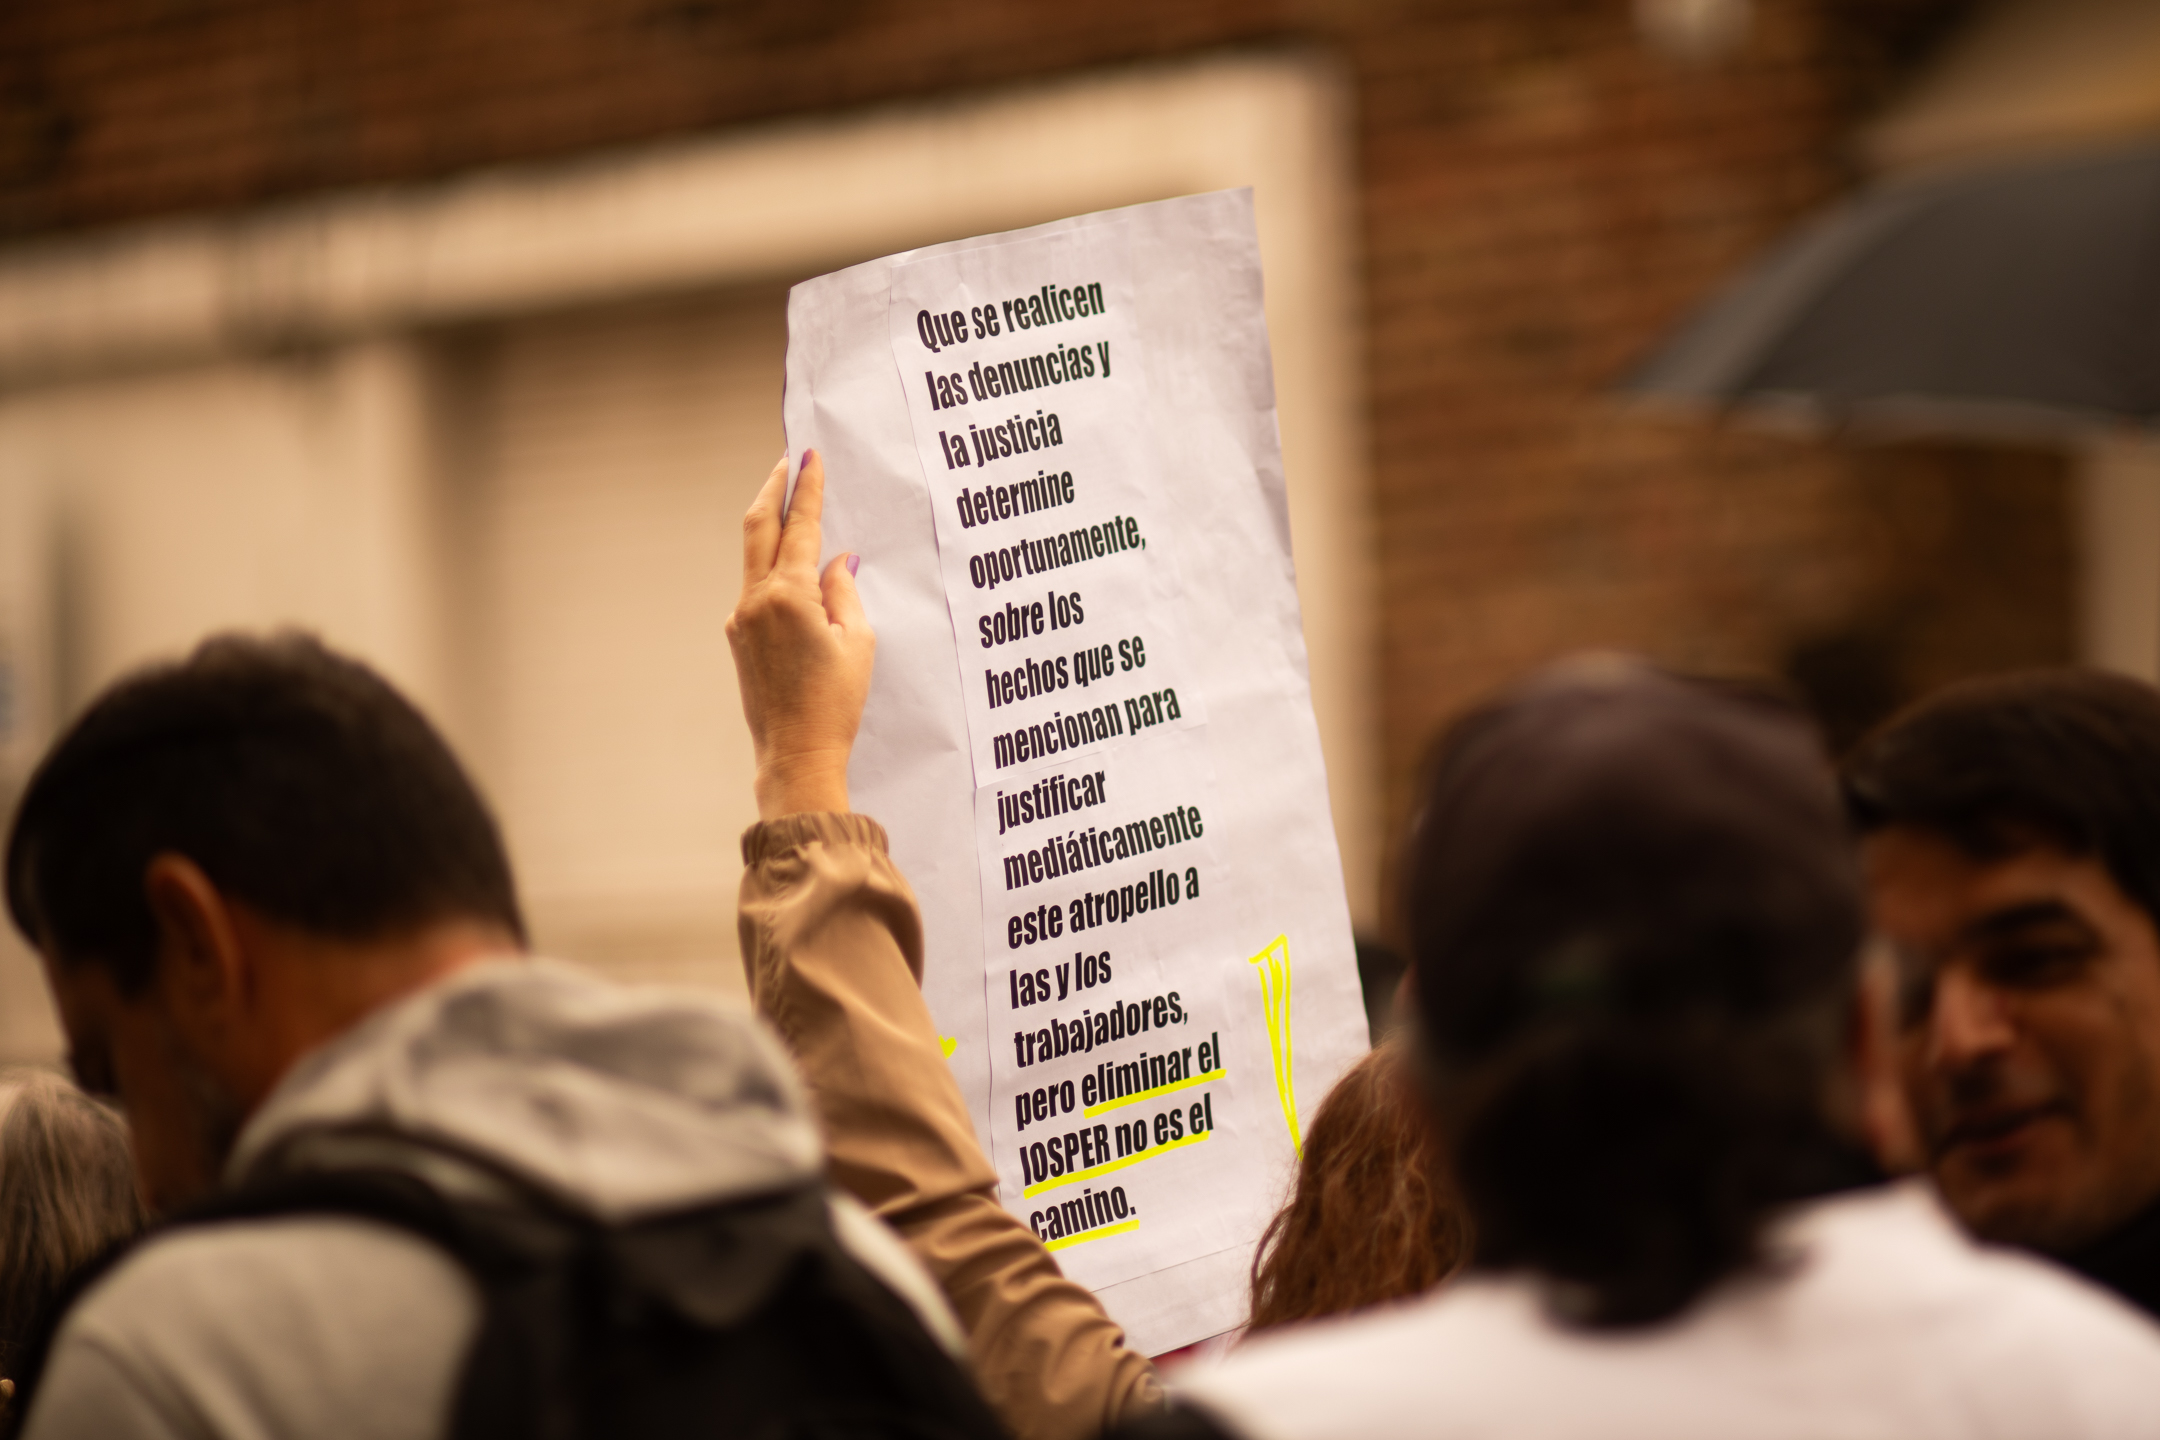 Que se realicen
las denuncias y
la justicia
determine
oportunamente,
sobre los
hechos que se
mencionan para
justificar
mediáticamente
este atropello a
las y los
trabajadores,
pero eliminar el
IOSPER no es el
camino.